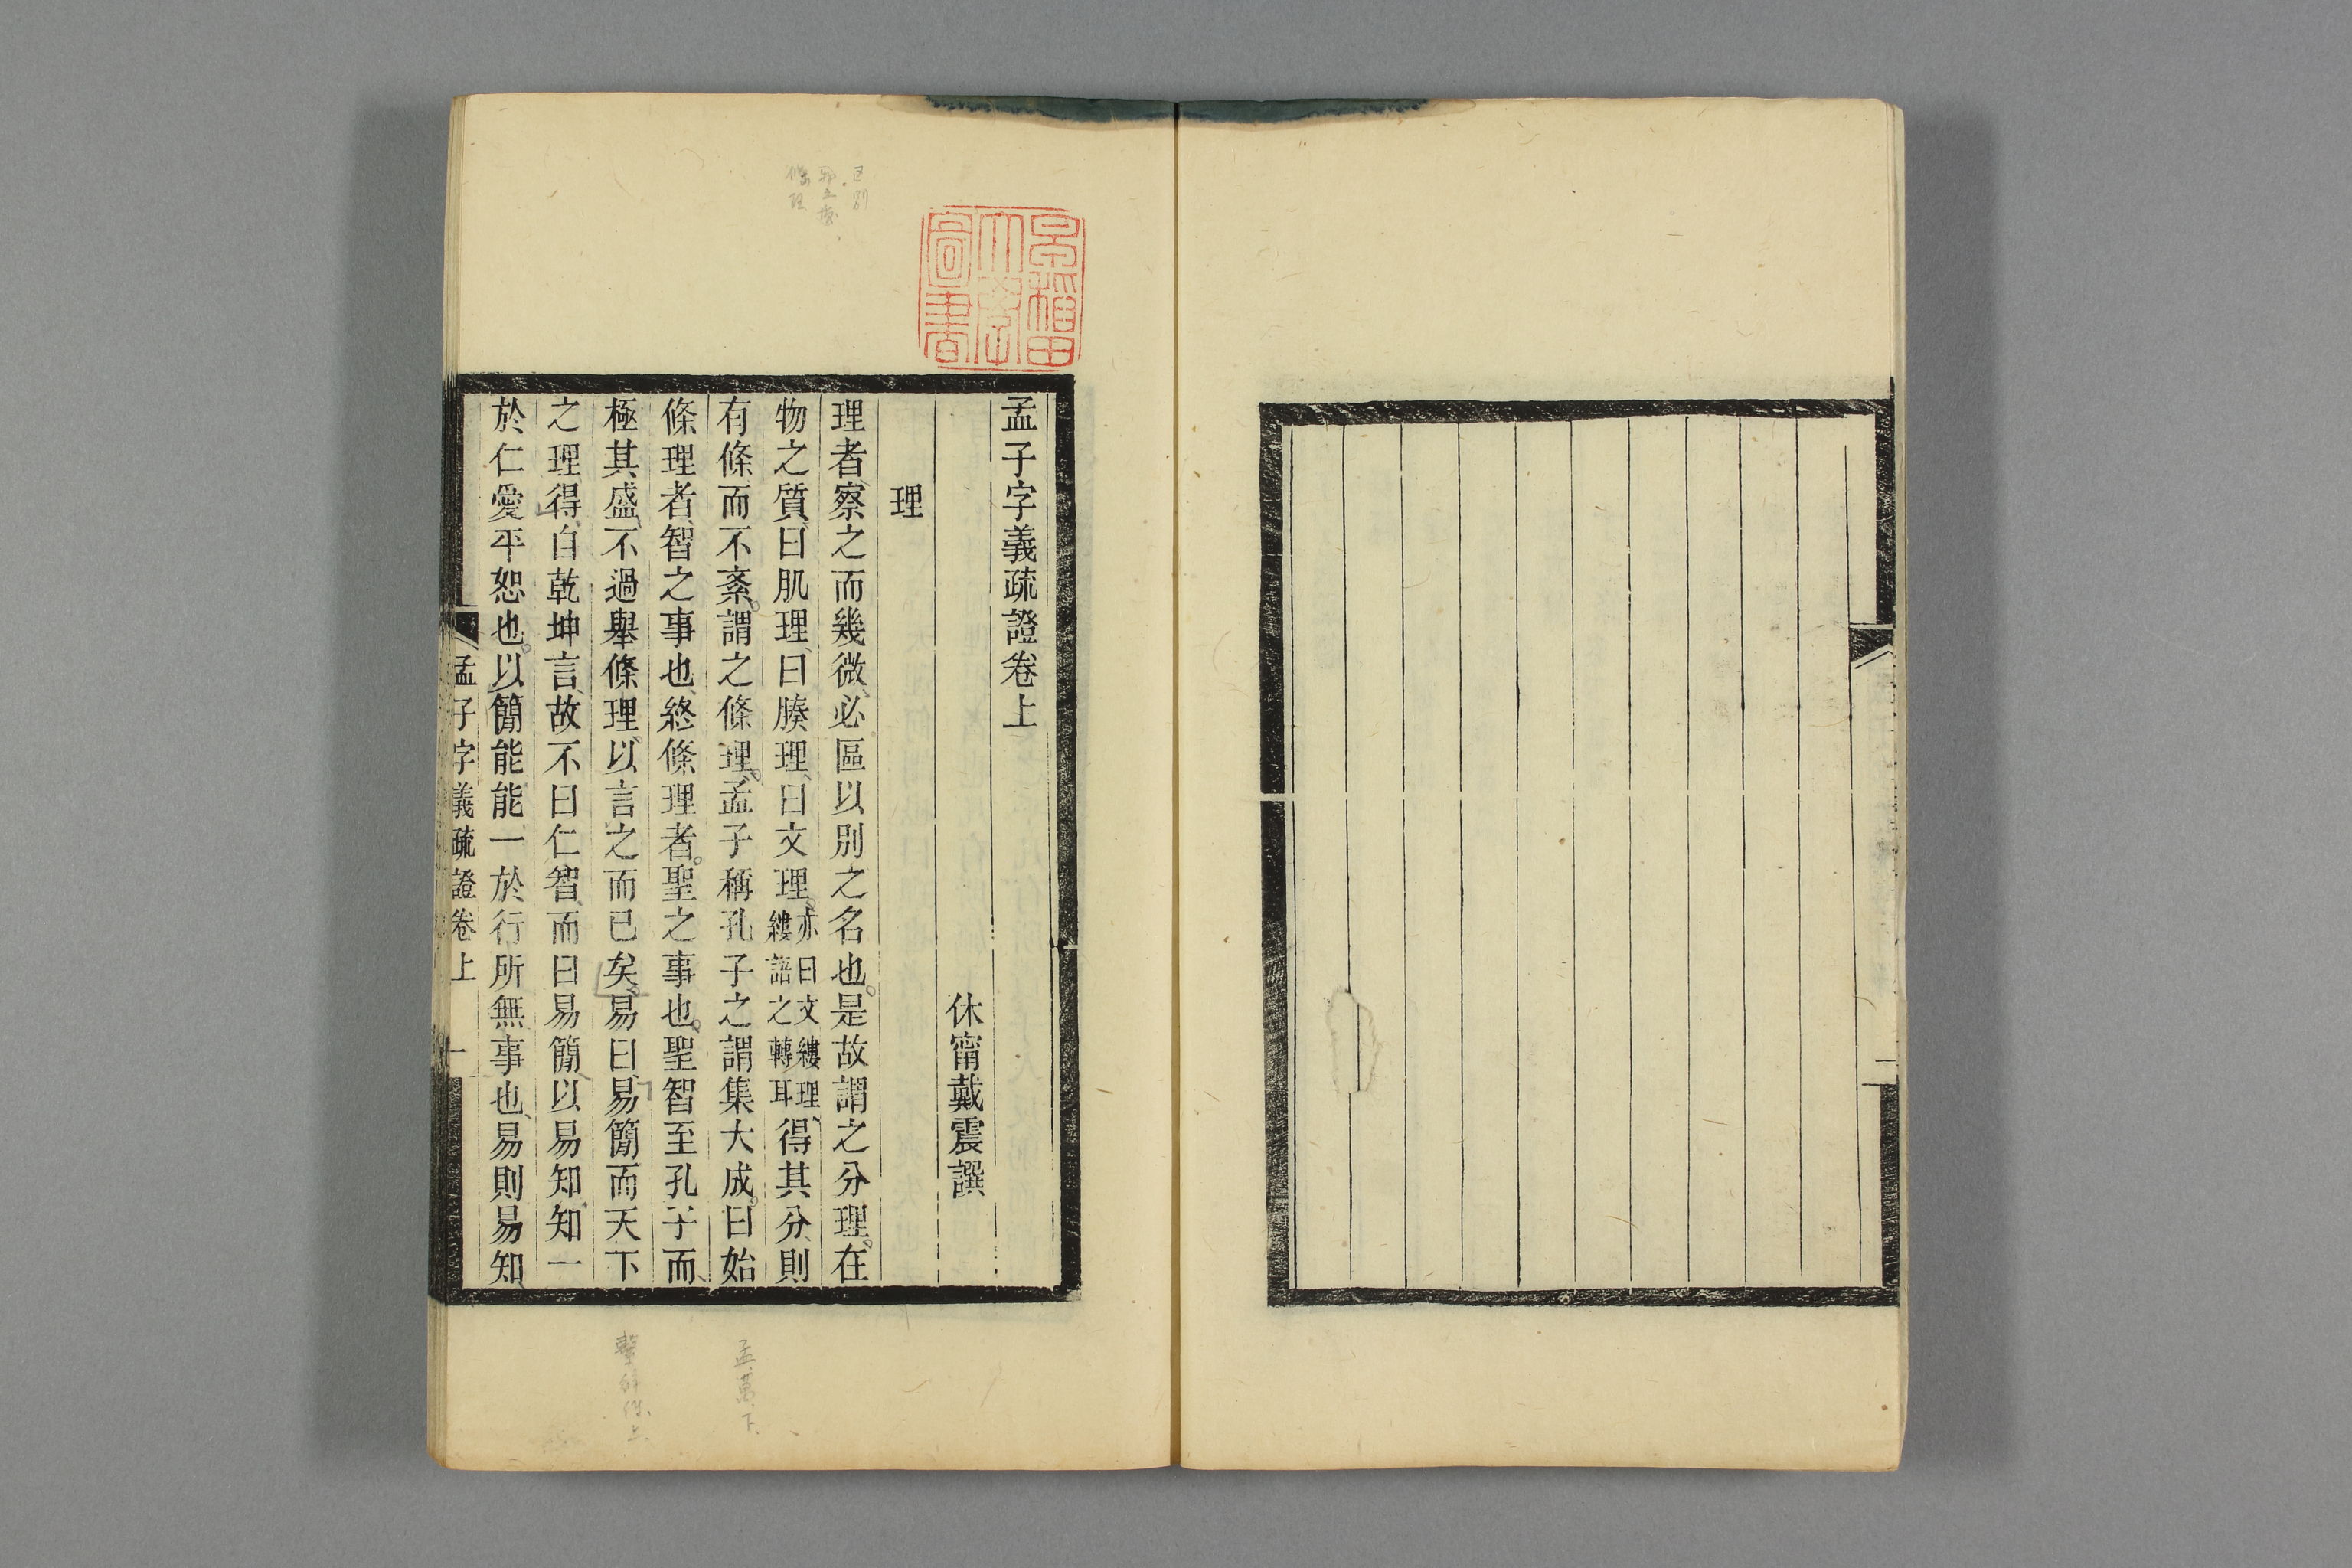 孟子字義疏證卷上
休甯戴震譔
理
理者察之而幾微必區以別之名也是故謂之分理在
物之質曰肌理曰腠理曰文理亦曰文縷理縷語之轉耳得其分則
有條而不紊謂之條理孟子稱孔子之謂集大成曰始
條理者智之事也終條理者聖之事也聖智至孔子而
極其盛不過舉條理以言之而已矣易曰易簡而天下
之理得自乾坤言故不曰仁智而曰易簡以易知知一
於仁愛平恕也以簡能能一於行所無事也易則易知
孟子字義疏證卷上 一
早稲田
大學
圖書
区別
條理
孟萬下
繫辞伝上